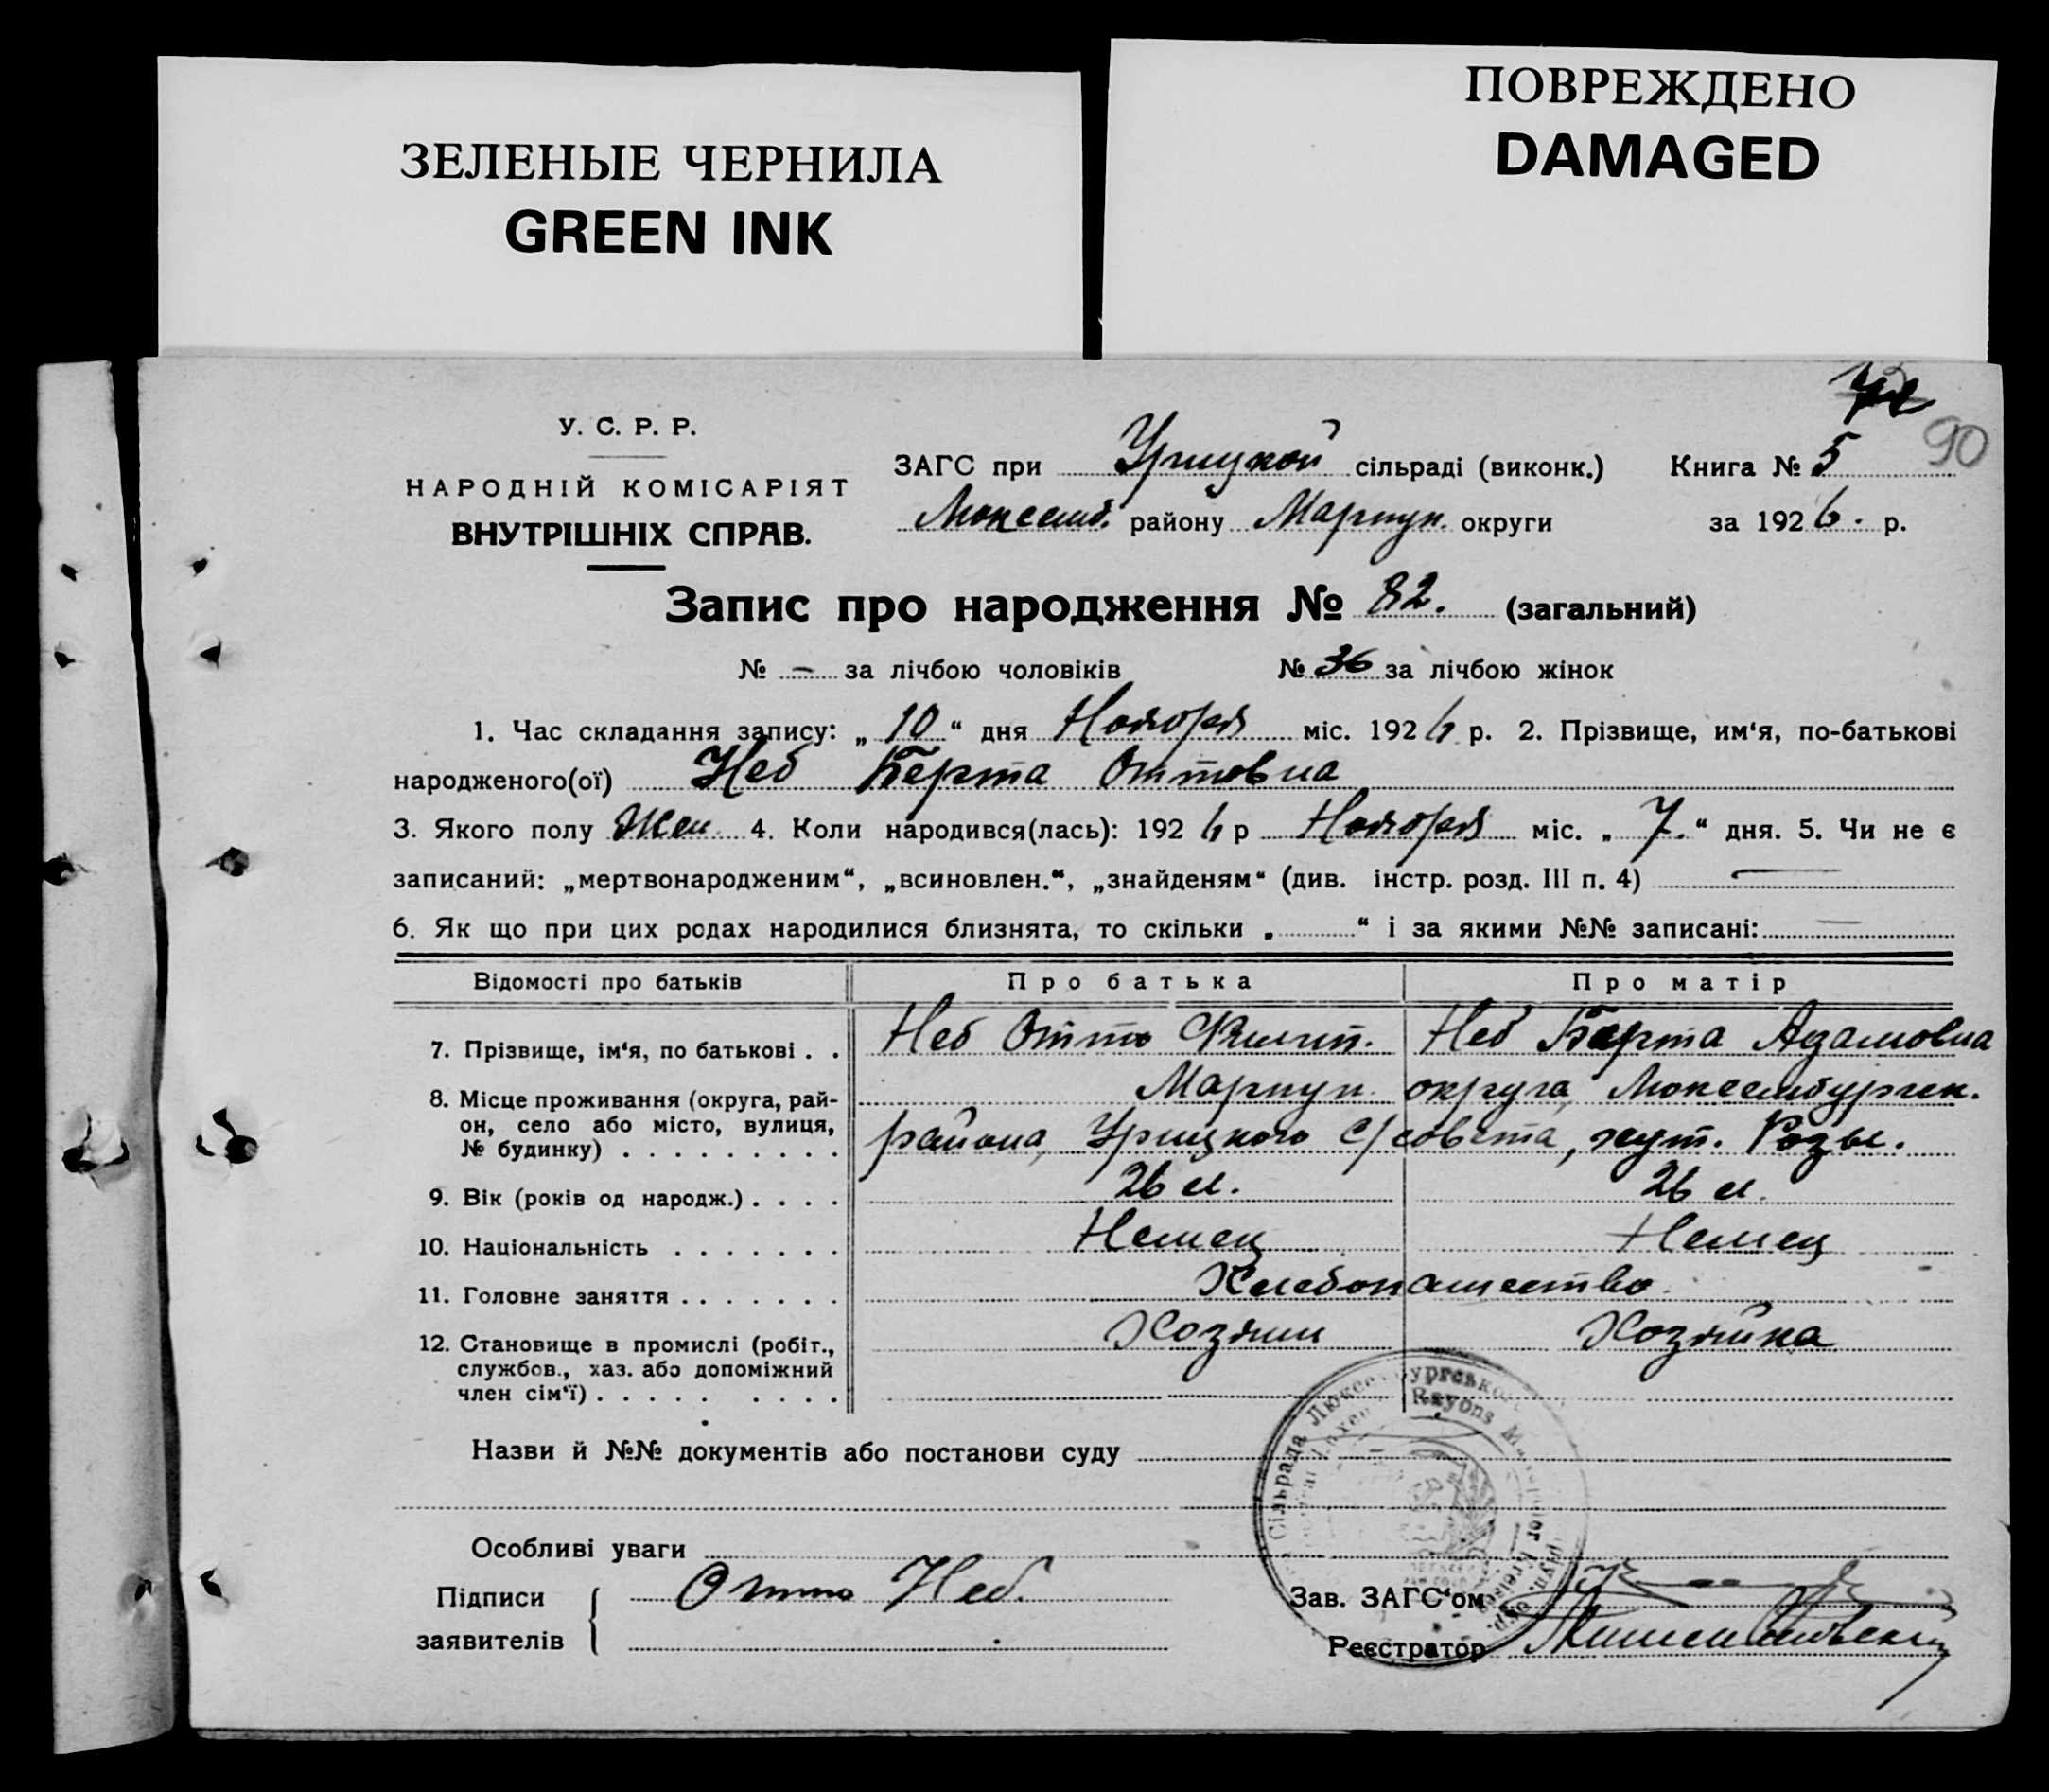 ЗЕЛЕНЫЕ ЧЕРНИЛА
GREEN INK
ПОВРЕЖДЕНО
DAMAGED
90
У. С. Р. Р.
НАРОДНІЙ КОМІСАРІЯТ
ВНУТРІШНІХ СПРАВ.
ЗАГС при Урицкой сільраді (виконк.) Книга № 5
Люксемб. району Мариуп. округи за 1926. р.
Запис про народження № 82. (загальний)
№ – за лічбою чоловіків № 36 за лічбою жінок
1. Час складання запису: „ 10 “ дня Ноября міс. 1926 р. 2. Прізвище, им‘я, по-батькові
народженого(ої) Неб Берта Оттовна
3. Якого полу Жен 4. Коли народився(лась): 1926 р Ноября міс. „ 7. “ дня. 5. Чи не є
записаний: „мертвонародженим“, „всиновлен.“, „знайденям“ (див. інстр. розд. III п. 4) —
6. Як що при цих родах народилися близнята, то скільки „ “ і за якими №№ записані: —
Відомості про батьків Про батька Про матір
7. Прізвище, ім‘я, по батькові . . Неб Отто Филип. Неб Берта Адамовна
8. Місце проживання (округа, рай- Мариуп. округа, Люксембургск.
он, село або місто, вулиця, района, Урицкого с/совета, хут. Розы.
№ будинку) . . . . . . . . .
9. Вік (років од народж.) . . . . 26 л. 26 л.
10. Національність . . . . . . . Немец Немец
11. Головне заняття . . . . . . . Хлебопашество.
12. Становище в промислі (робіт., Хозяин Хозяйка
службов., хаз. або допоміжний
член сім‘ї) . . . . . . . . .
Назви й №№ документів або постанови суду
Особливі уваги
Підписи Отто Неб.
заявителів
Зав. ЗАГС‘ом
Реєстратор
Сільрада Люксембургського
Rayons